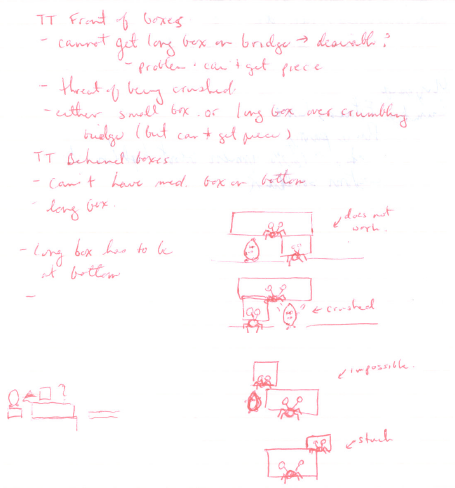 TT Front of boxes
- cannot get long box on bridge → doorable?
- problem - can't get piece
- threat of being crushed
- either small box or long box over crumbling
bridge (but can't get piece)
TT Behind boxes
- can't have med. box on bottom
- long box.
- Long box has to be
at bottom
-
does not
work.
crushed
impossible.
?
stuck